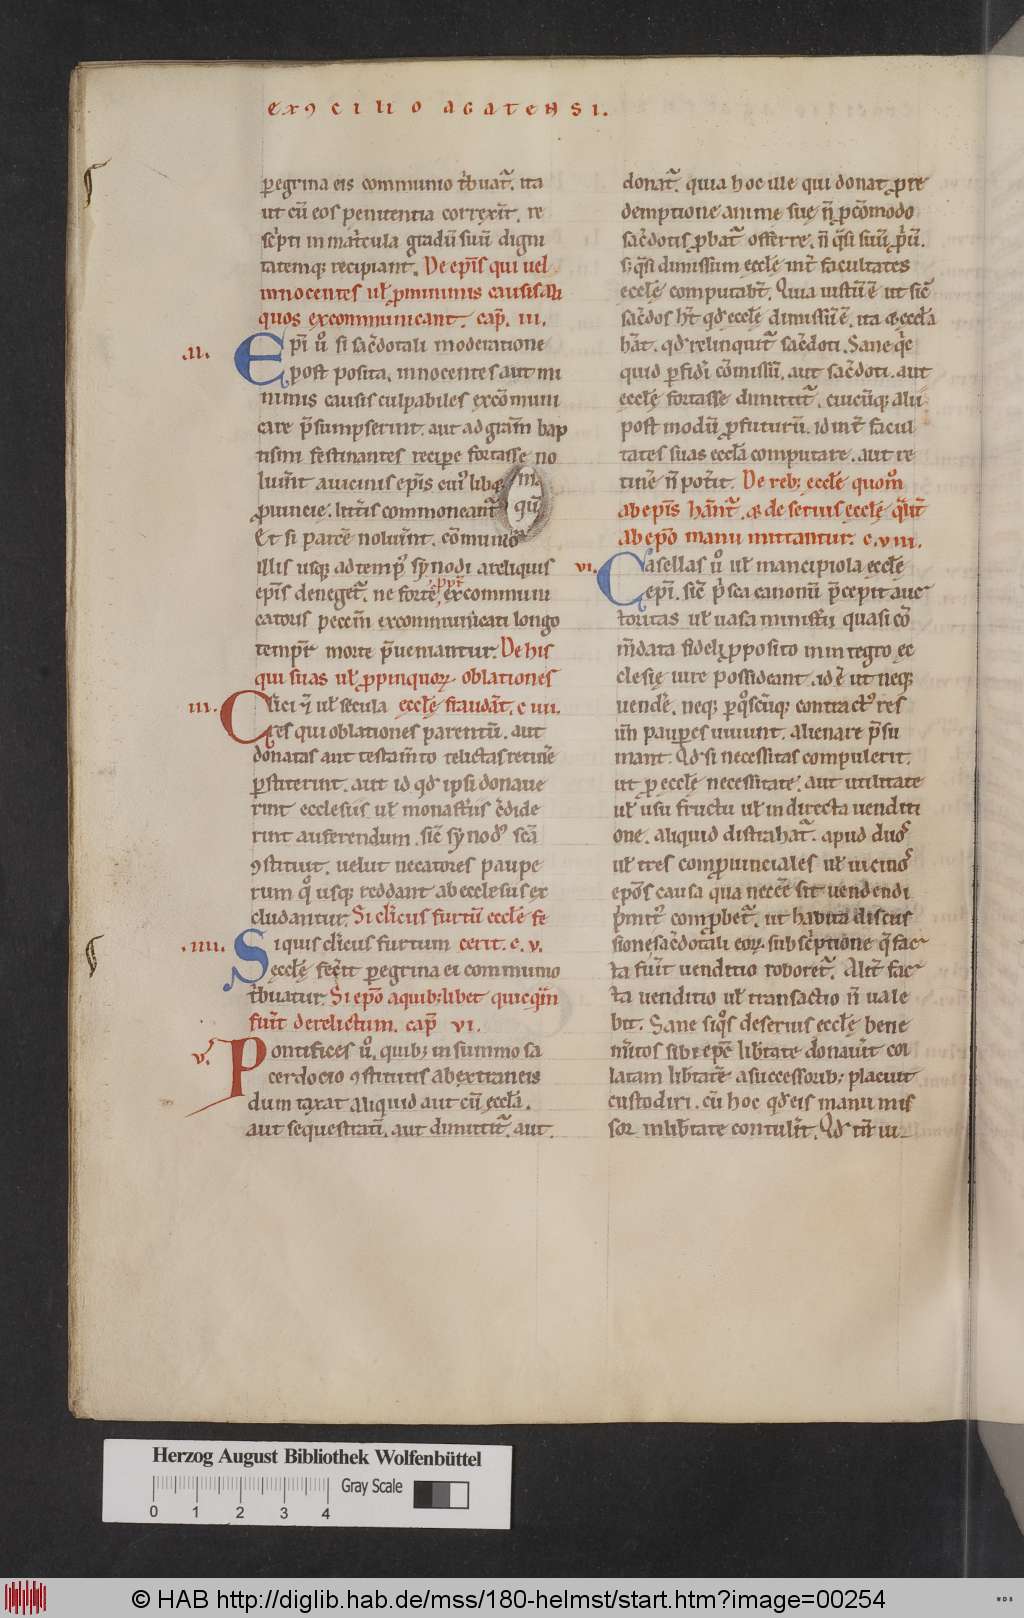 ex ꝯcilio agatensi.
ꝑegrina eis communio t̾buat᷑. ita
ut cū eos penitentia correxit̄. re
sc̾pti in mat̾cula gradū suū digni
tatemq; recipiant. De ep̄is qui uel
innocentes ul̵ ꝓ minimis causis ali
quos excommunicant. cap̄. iii.
.ii. Ep̄i u̾ si sac̄dotali moderatione
post posita. innocentes aut mi
nimis causis culpabiles excōmuni
care p̄sumpserint. aut ad gr̄am bap
tismi festinantes recipe fortasse no
luerint a uicinis ep̄is cui᷒libet
ꝓuincie. litt̄is commoneant᷑
Et si parere noluerint. cōmunio
illis usq; ad temp᷒ synodi a reliquis
ep̄is deneget᷑. ne forte excommuni
catoris peccm̄ excommunicati longo
tempr̄ morte p̄ueniantur. De his
qui suas ul̵ ꝓpinquoꝝ oblationes
iii. Clerici etiā ul̵ secula eccl̄e fraudant. c iiii.
res qui oblationes parentū. aut
donatas aut testamto relictas retinere
ꝑstiterint. aut id qd̵ ipsi donaue
rint ecclesiis ul̵ monast̾iis c̄dide
rint auferendum. sic̄ synod᷒ sc̄a
ꝯstituit. uelut necatores paupe
rum quousq; reddant ab ecclesiis ex
cludantur. Si cl̾icus furtū eccl̄e fe
.iiii. Si quis cl̾icus furtum cerit. c. v.
eccl̄e fec̾it ꝑegrina ei communio
t̾buatur. Si ep̄o a quib;libet quicq̄m
fuīt derelictum. cap̄ vi.
v. Pontifices u̾. quib; in summo sa
cerdocio ꝯstitutis ab extraneis
dum taxat aliquid aut cū eccl̄a.
aut sequestratī. aut dimittit᷑. aut
ma
qū
donat᷑. quia hoc ille qui donat ꝓ re
demptione anime sue n̄ ꝓ cōmodo
sac̄dotis ꝓbat᷑ offerre. n̄ q̄si suū ꝓpriū.
s; q̄si dimissum eccl̄e int̾ facultates
eccl̄e computabt̄. Quia iustū ē ut sic̄
sac̄dos ht̄ qd̵ eccl̄e dimissū ē. ita & eccl̄a
hāt. qd̵ relinquit᷑ sac̄doti. Sane q̄c
quid ꝑ fidei cōmissū. aut sac̄doti. aut
eccl̄e fortasse dimittit᷑. cuicūq; alii
post modū ꝓfuturū. id int̾ facul
tates suas eccl̄a computare. aut re
tinē n̄ pot̾it. De reb; eccl̄e quom̄
ab ep̄is hānt᷑. & de seruis eccl̄e q̄lit̾
ab ep̄o manu mittantur. c. viii.
vi. Casellas u̾ ul̵ mancipiola eccl̄e
ep̄i. sic̄ p̾sca canonū p̄cepit auc
toritas ul̵ uasa ministerii quasi cō
m̄data fideli ꝓposito in integro ec
clesie iure possideant. id ē ut neq;
uendere. neq; ꝑ quoscūq; contract᷒ res
un̄ pauperes uiuunt. alienare p̄su
mant. Qd̵ si necessitas compulerit.
ut ꝓ eccl̄e necessitate. aut utilitate
ul̵ usu fructu ul̵ in directa uenditi
one. aliquid distrahat᷑. apud duos
ul̵ tres comꝓuinciales ul̵ uicinos
ep̄os causa qua necē sit uendendi
p̄mit᷒ comꝓbet᷑. ut habita discus
sione sac̄dotali eoꝝ subsc̾ptione q̄ fac
ta fuīt uenditio roboret᷑. Alit̾ fac
ta uenditio ul̵ transactio n̄ uale
bit. Sane siq̄s de seruis eccl̄e bene
m̾itos sibi ep̄c lib̾tate donauit col
latam lib̾tatē a successorib; placuit
custodiri. cū hoc qd̵ eis manu mis
sor in lib̾tate contulīt. Qd̵ tn̄ iu
Herzog August Bibliothek Wolfenbüttel
Gray Scale
0 1 2 3 4
© HAB http://diglib.hab.de/mss/180-helmst/start.htm?image=00254